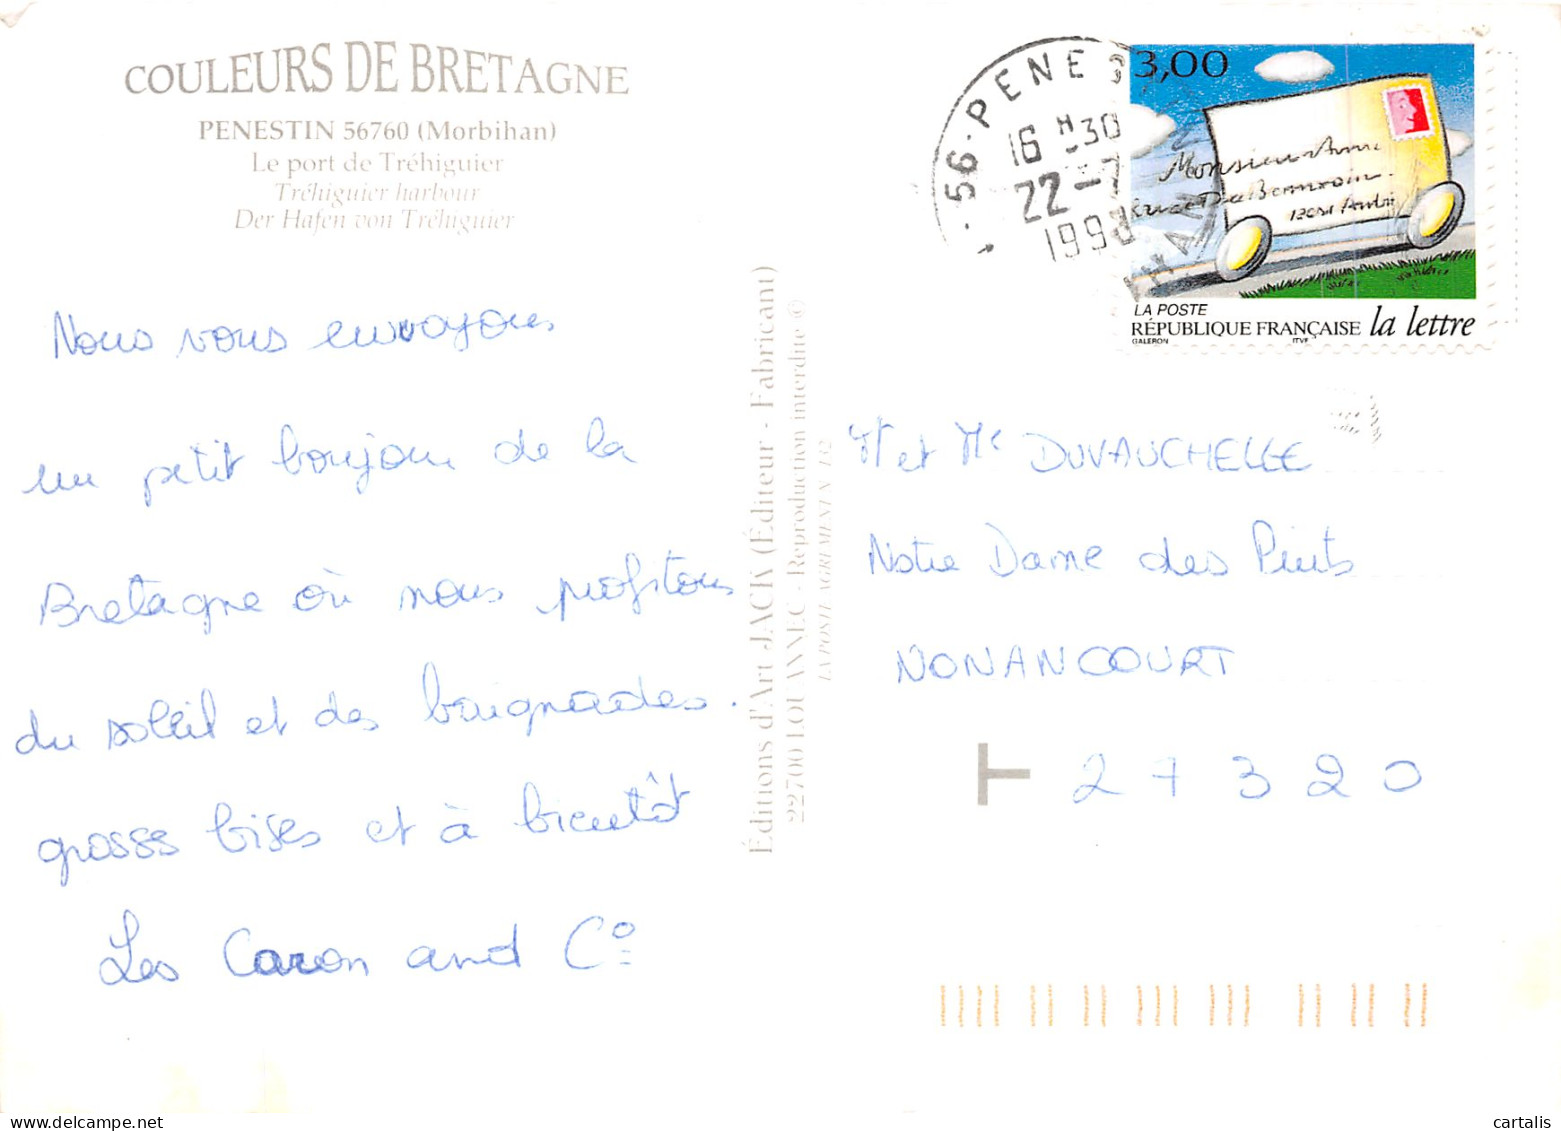 COULEURS DE BRETAGNE
PENESTIN 56760 (Morbihan)
Le port de Tréhiguier
Tréhiguier harbour
Der Hafen von Tréhiguier
Nous vous envoyons
un petit bonjour de la
Bretagne où nous profitons
du soleil et des baignades.
grosses bises et à bientôt
Les Caron and C°
Éditions d'Art JACK (Éditeur - Fabricant)
22700 LOUANNEC - Reproduction interdite ©
LA POSTE AGREMENT N°
56 · PENES
16 H 30
22 -7
1998
3,00
Monsieur
LA POSTE
RÉPUBLIQUE FRANÇAISE la lettre
GALERON ITVF
Mr et Me DUVAUCHELLE
Notre Dame des Puits
NONANCOURT
T 27320
cartalis